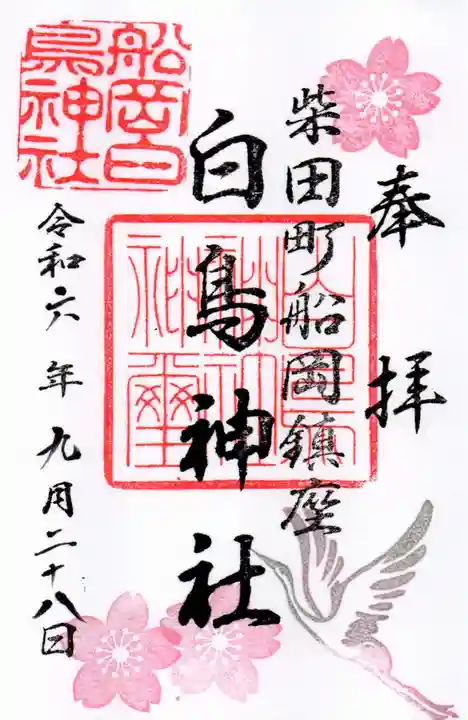 奉拝
柴田町船岡鎮座
白鳥神社
船岡白鳥神社
令和六年九月二十八日